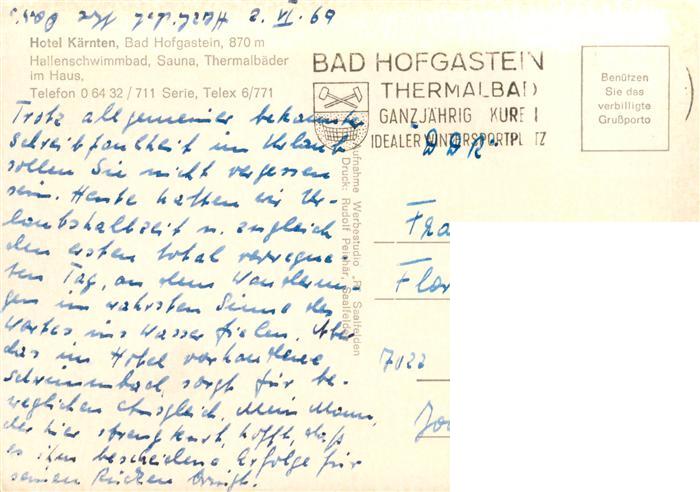 2. VI. 69
Hotel Kärnten, Bad Hofgastein, 870 m
Hallenschwimmbad, Sauna, Thermalbäder
im Haus,
Telefon 0 64 32 / 711 Serie, Telex 6/771
Trotz allgemeiner bekannter
Schreibfaulheit im Urlaub
sollen Sie nicht vergessen
sein. Heute hatten wir Ur-
laubshalbzeit u. zugleich
den ersten total verregne-
ten Tag, an dem Wanderun-
gen im wahrsten Sinne des
Wortes ins Wasser fielen. Aber
das im Hotel vorhandene
Schwimmbad sorgt für be-
weglichen Ausgleich. Mein Mann,
der hier streng kurt, hofft, daß
es ihm bescheidene Erfolge für
seinen Rücken bringt.
Aufnahme Werbestudio Saalfelden
Druck: Rudolf Saalfelden
BAD HOFGASTEIN
THERMALBAD
GANZJÄHRIG KURE
IDEALER WINTERSPORTPL TZ
Benützen
Sie das
verbilligte
Grußporto
DDR
Fra
Flor
7022